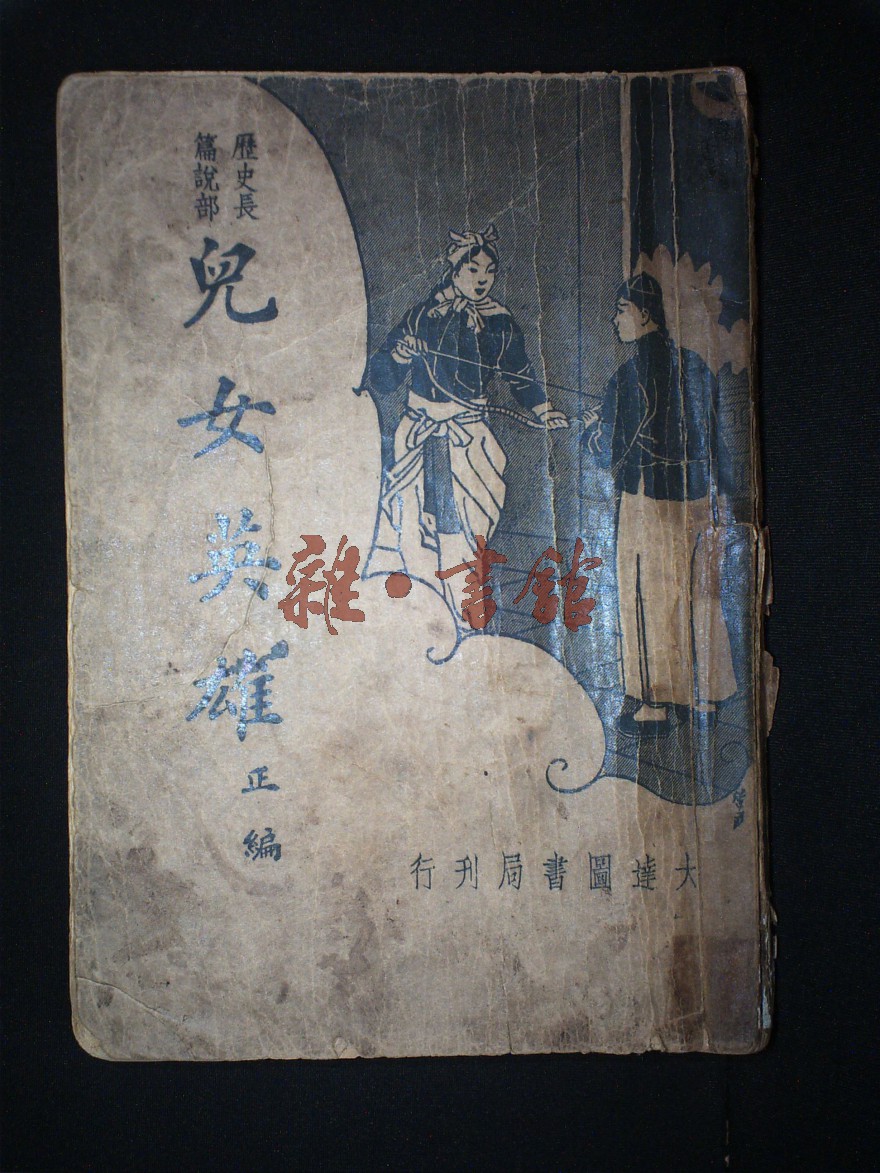 歷史長
篇說部
兒女英雄
正編
大達圖書局刊行
雜·書館